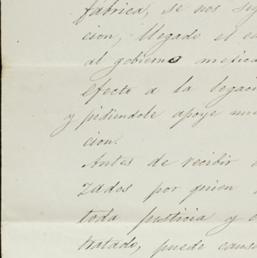 fabrica, se nos sig
cion, llegado el c
al gobierno mexica
efecto a la legaci
y pidiendole apoye nu
cion.
Antes de recibir
zados por quien
toda justicia y
tratado, puede caus